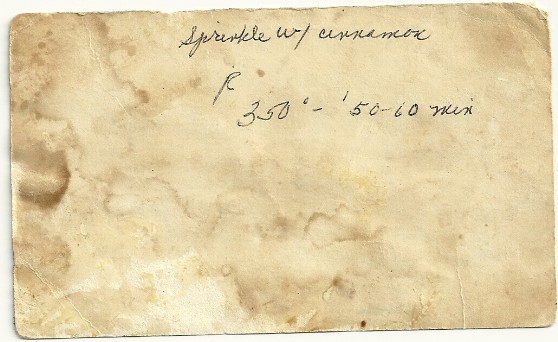 Sprinkle w/ cinnamon
350° - 50-60 min